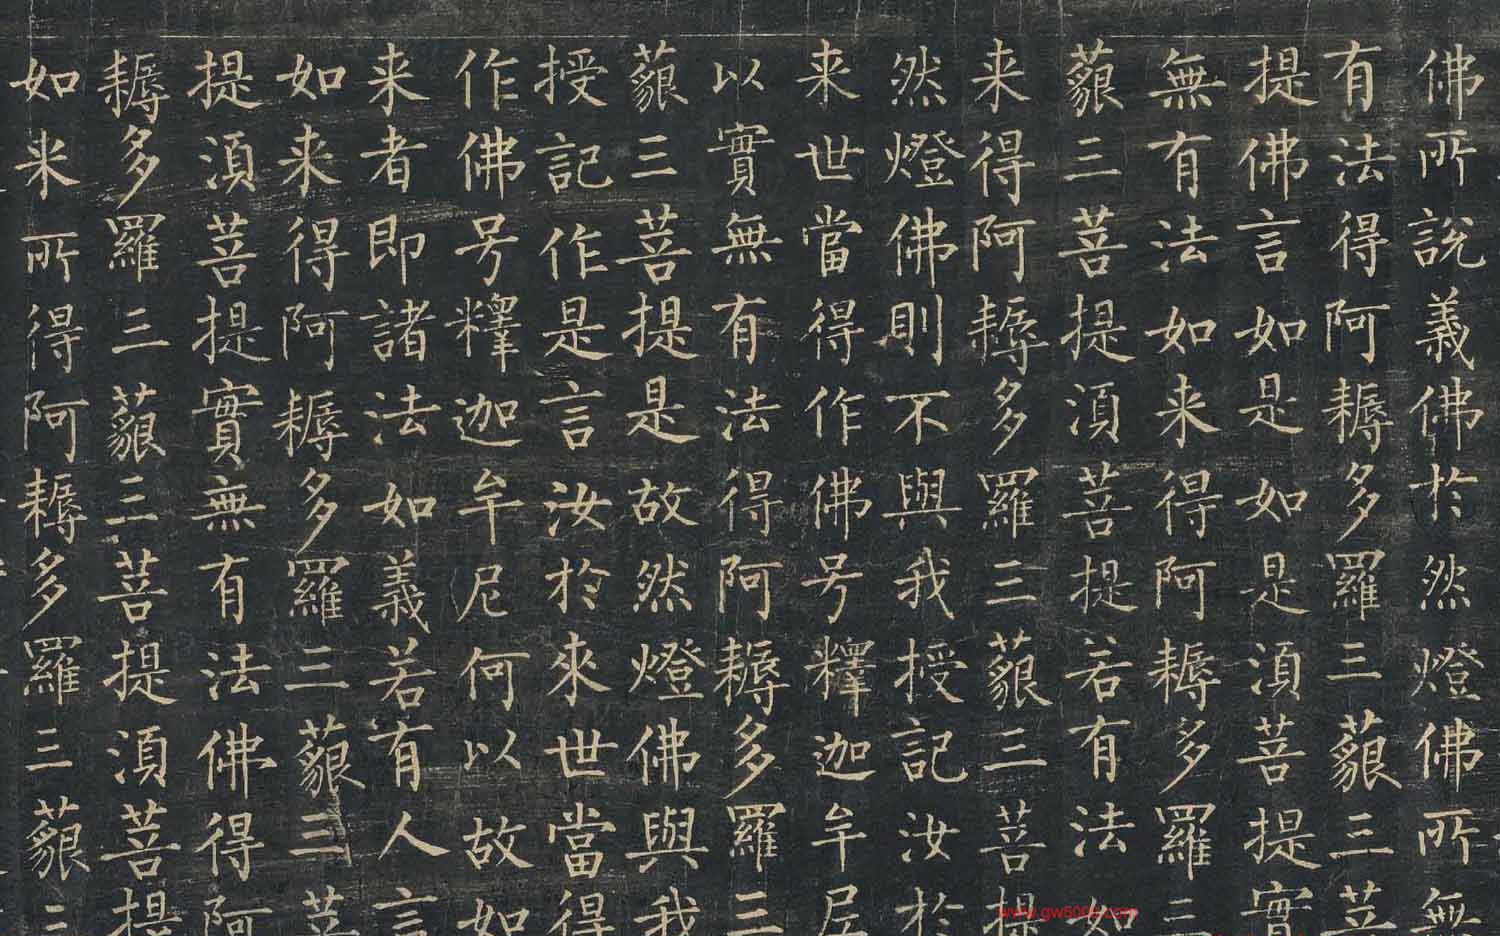 佛所說義佛於然燈佛所無
有法得阿耨多羅三藐三菩
提佛言如是如是湏菩提實
無有法如来得阿耨多羅三
藐三菩提湏菩提若有法如
来得阿耨多羅三藐三菩提
然燈佛則不與我授記汝於
来世當得作佛号釋迦牟尼
以實無有法得阿耨多羅三
藐三菩提是故然燈佛與我
授記作是言汝於來世當得
作佛号釋迦牟尼何以故如
来者即諸法如義若有人言
如来得阿耨多羅三藐三菩
提湏菩提實無有法佛得阿
耨多羅三藐三菩提湏菩提
如来所得阿耨多羅三藐三
www.gw500c.com